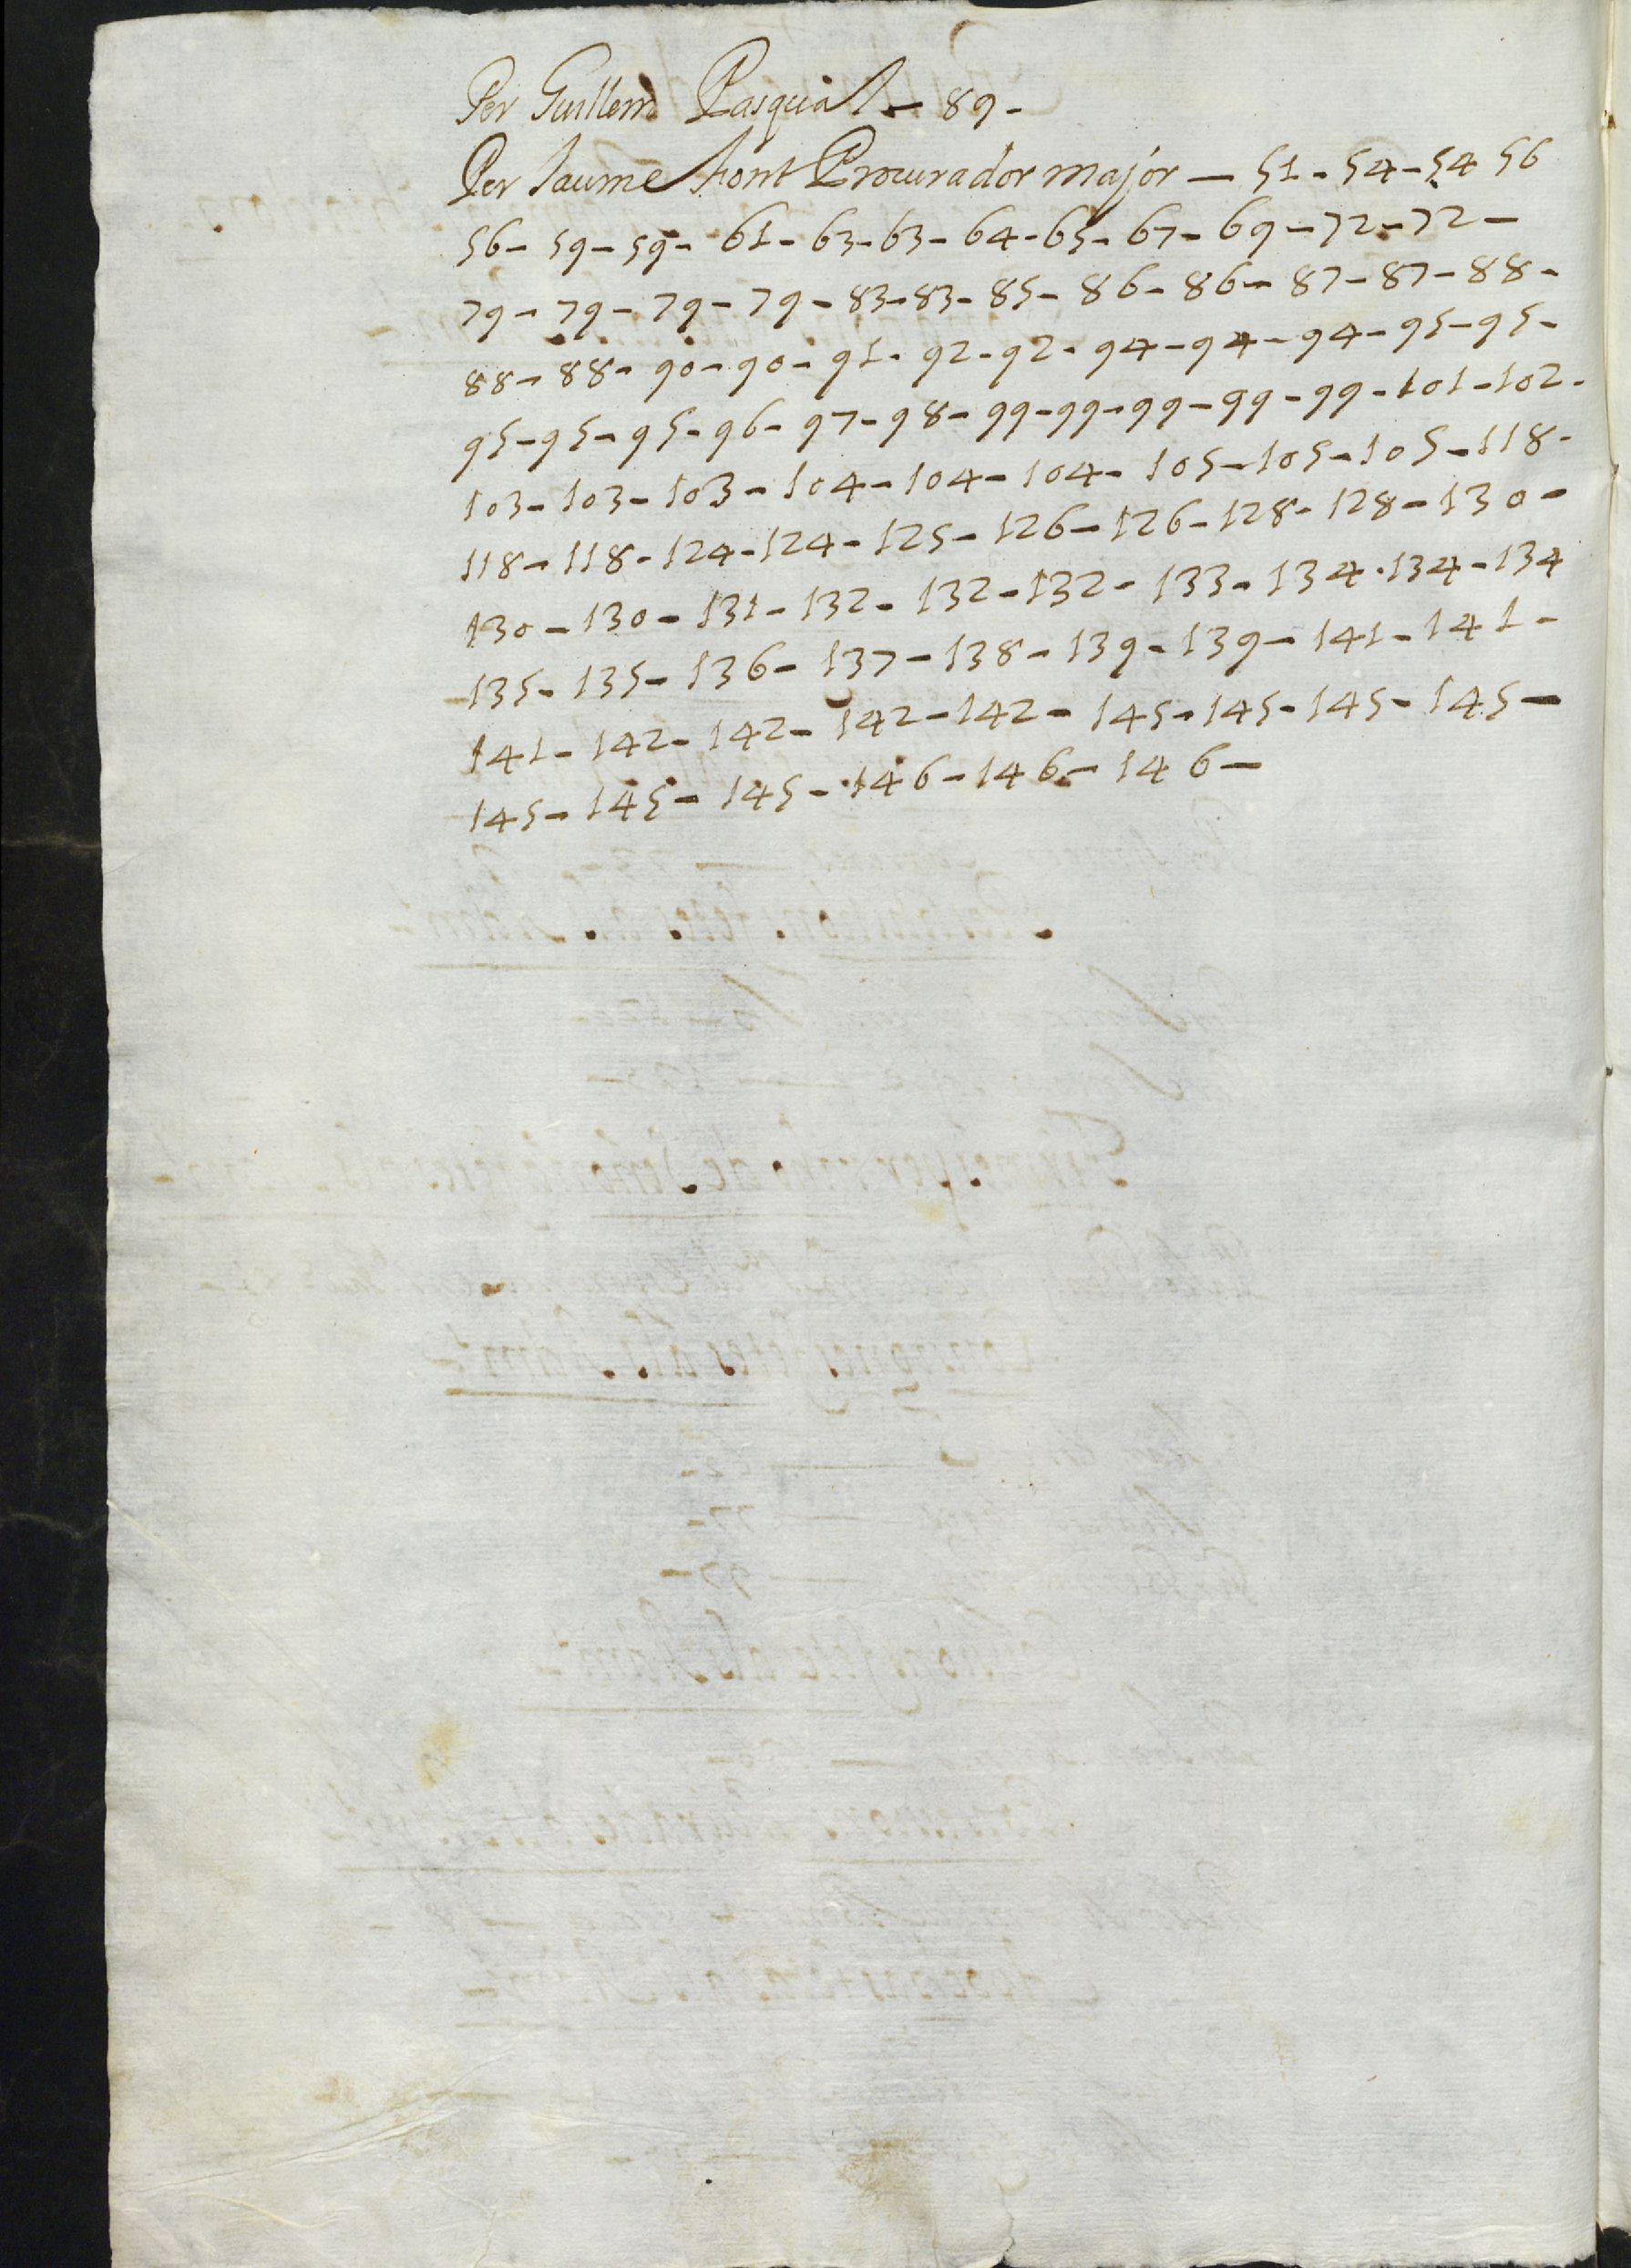 Per Guillem Pasqual - 89 -
Per Jaume Font Procurador major - 51 - 54 - 54 56
56 - 59 - 59 - 61 - 63 - 63 - 64 - 65 - 67 - 69 - 72 - 72 -
79 - 79 - 79 - 79 - 83 - 83 - 85 - 86 - 86 - 87 - 87 - 88 -
88 - 88 - 90 - 90 - 91 - 92 - 92 - 94 - 94 - 94 - 95 - 95 -
95 - 95 - 95 - 96 - 97 - 98 - 99 - 99 - 99 - 99 - 99 - 101 - 102 -
103 - 103 - 103 - 104 - 104 - 104 - 105 - 105 - 105 - 118 -
118 - 118 - 124 - 124 - 125 - 126 - 126 - 128 - 128 - 130 -
130 - 130 - 131 - 132 - 132 - 132 - 133 - 134 - 134 - 134
135 - 135 - 136 - 137 - 138 - 139 - 139 - 141 - 141 -
141 - 142 - 142 - 142 - 142 - 145 - 145 - 145 - 145 -
145 - 145 - 145 - 146 - 146 - 146 -